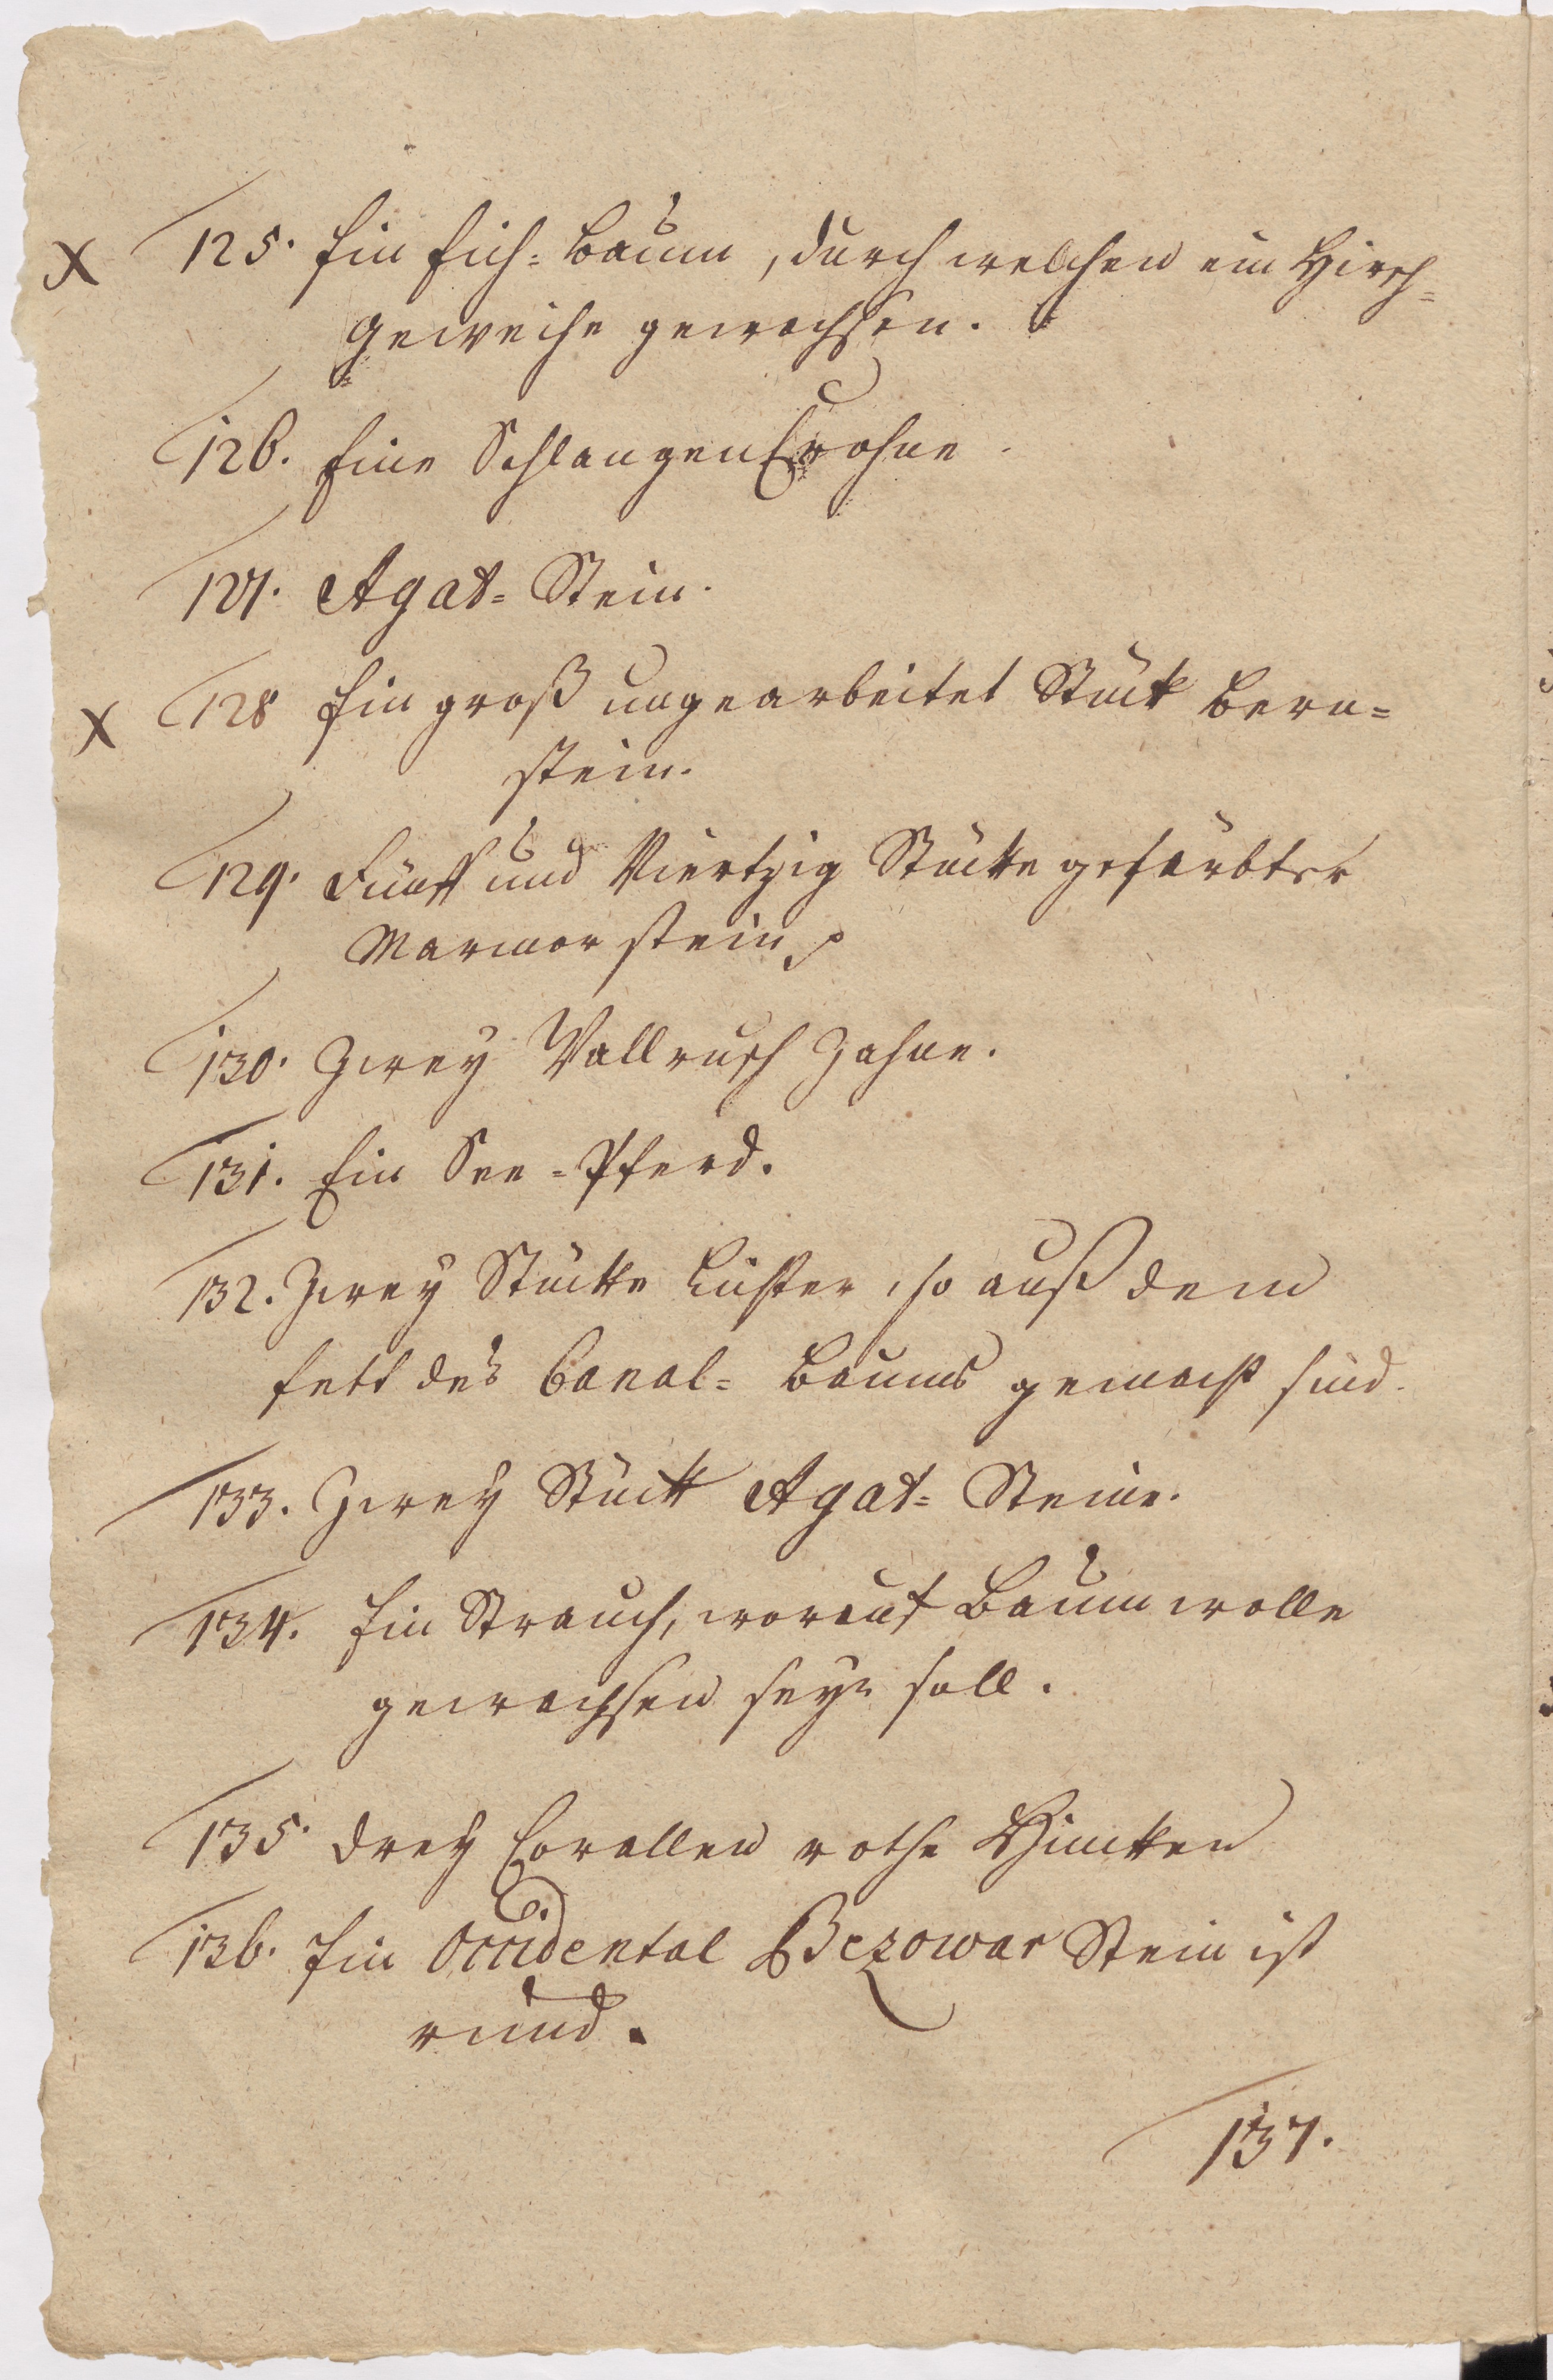 X 125. Ein Eich= baum, durch welchen ein Hirsch=
geweihe gewachsen.
126. Eine SchlangenCrohne.
127. Agat= Stein.
X 128 Ein groß ungearbeitet Stück bern=
stein.
129. Fünff und Viertzig Stücke gefärbter
Marmor stein
130. Zwey Wallrusch Zähne.
131. Ein See=Pferd.
132. Zwey Stücke Lichter, so auß dem
fett des Canal= baums gemacht sind.
133. Zwey Stück Agat= Steine.
134. Ein Strauch, worauf Baum wolle
gewachsen seyn soll.
135. Drey Corallen rothe
136. Ein Occidental Bezowar Stein ist
rund.
137.